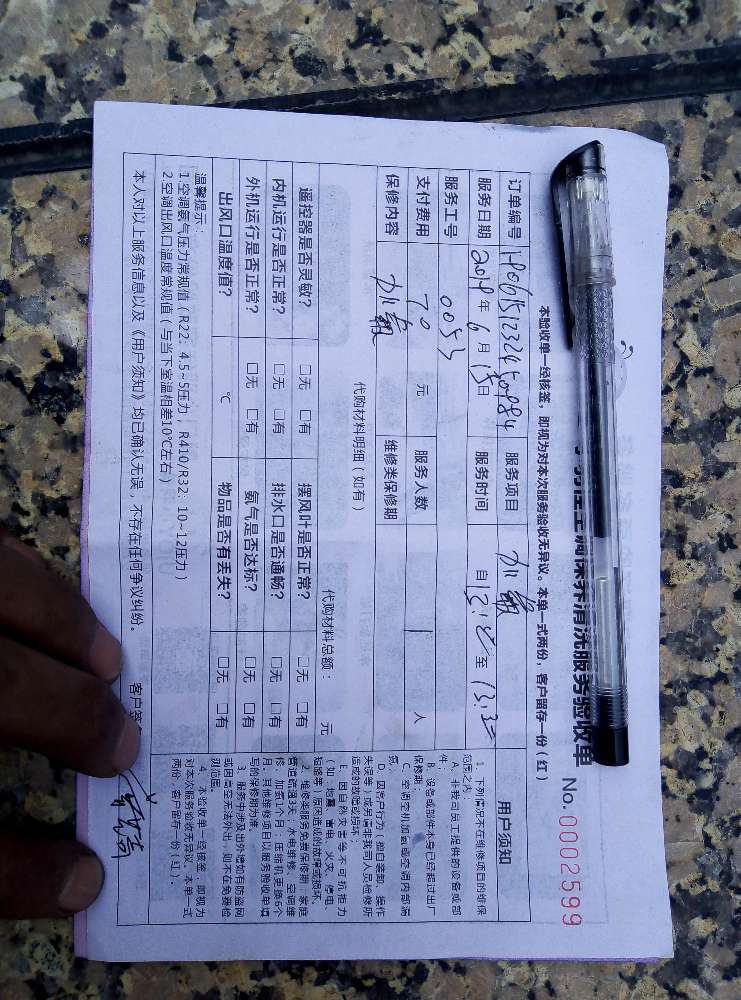 空调保养清洗服务验收单
No.0002599
本验收单一经核签，即视为对本次服务验收无异议。本单一式两份，客户留存一份（红）
订单编号 服务项目 加氨
服务日期 2019年6月15日 服务时间 自 至
服务工号 0053
支付费用 70 元 服务人数 人
保修内容 加氨 维修类保修期
代购材料明细（如有）
代购材料总额： 元
遥控器是否灵敏？ □无 □有 摆风叶是否正常？ □无 □有
内机运行是否正常？ □无 □有 排水口是否通畅？ □无 □有
外机运行是否正常？ □无 □有 氨气是否达标？ □无 □有
出风口温度值？ ℃ 物品是否有丢失？ □无 □有
温馨提示：
1.空调氨气压力常规值（R22：4.5~5压力，R410/R32：10~12压力）
2.空调出风口温度常规值（与当下室温相差10℃左右）
本人对以上服务信息以及《用户须知》均已确认无误，不存在任何争议纠纷。 客户签
用户须知
1、下列情况不在维修项目的维保
范围之内：
A、非我司员工提供的设备或部
件；
B、设备或部件本身已经超过出厂
保修期；
C、空调空机加氨或空调内部漏
氨；
D、因客户行为：擅自装卸、操作
失误等，或另请非我司人员检修所
造成的故障或损坏；
E、因自然灾害等不可抗拒力
（如：地震、雷电、火灾、停电、
超高等）原因造成的故障或损坏。
2、维修类服务免费保修期：家庭
管道疏通3天，水电维修、空调维
修、加氨1个月，压缩机更换6个
月，其他维修项目以服务验收单填
写的保修期为准。
3、服务中涉及出外墙如有防盗网
或因高空无法外出，则不在免费检
测范围。
4、本验收单一经核签，即视为
对本次服务验收无异议。本单一式
两份，客户留存一份（红）。